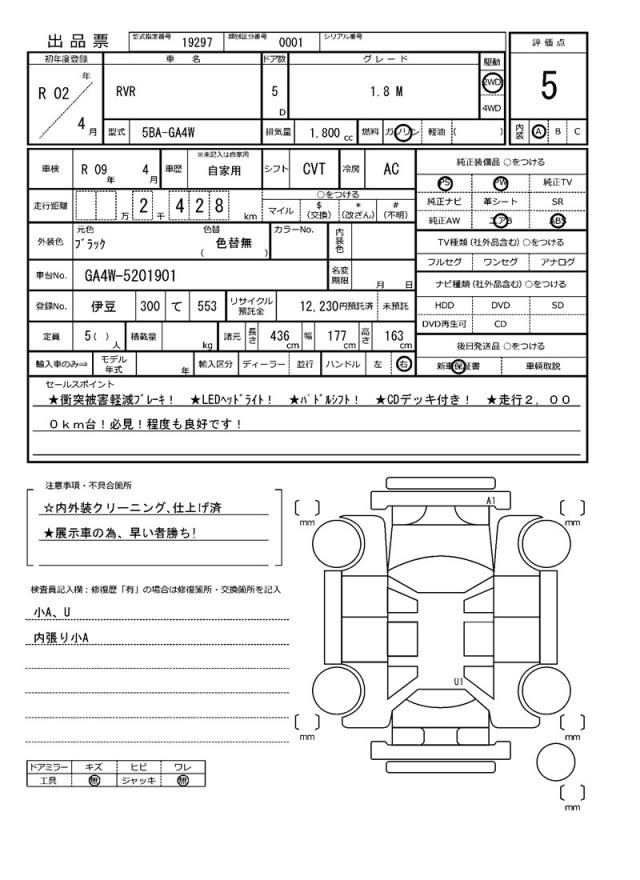 出品票 型式指定番号 19297 類別区分番号 0001 シリアル番号
初年度登録 車名 ドア数 グレード 駆動 評価点
R 02 年 4 月 RVR 5 D 1.8 M 2WD 4WD 5
型式 5BA-GA4W 排気量 1.800 cc 燃料 ガソリン 軽油 ( ) 内装 A B C
車検 R 09 年 4 月 車歴 ※未記入は自家用 自家用 シフト CVT 冷房 AC
純正装備品 ○をつける
PS PW 純正TV
走行距離 万 2 千 428 km ○をつける
マイル $ (交換) * (改ざん) # (不明)
純正ナビ 革シート SR
純正AW エアB ABS
外装色 元色 ブラック 色替 ( 色替無 ) カラーNo. 内装色
TV種類 (社外品含む) ○をつける
フルセグ ワンセグ アナログ
車台No. GA4W-5201901 名変期限 月 日
ナビ種類 (社外品含む) ○をつける
登録No. 伊豆 300 て 553 リサイクル預託金 12,230円預託済 未預託
HDD DVD SD
DVD再生可 CD
定員 5( ) 人 積載量 kg 諸元 長さ 436 cm 幅 177 cm 高さ 163 cm
後日発送品 ○をつける
輸入車のみ⇒ モデル年式 年 輸入区分 ディーラー 並行 ハンドル 左 右
新車保証書 車輌取説
セールスポイント
★衝突被害軽減ﾌﾞﾚｰｷ！ ★LEDﾍｯﾄﾞﾗｲﾄ！ ★ﾊﾟﾄﾞﾙｼﾌﾄ！ ★CDデッキ付き！ ★走行２，００
０ｋｍ台！必見！程度も良好です！
注意事項・不具合箇所
☆内外装クリーニング､仕上げ済
★展示車の為、早い者勝ち!
検査員記入欄：修復歴「有」の場合は修復箇所・交換箇所を記入
小A、U
内張り小A
ドアミラー キズ ヒビ ワレ
工具 無 ジャッキ 無
A1
[ ] mm
[ ] mm
U1
[ ] mm
[ ] mm
[ ] mm